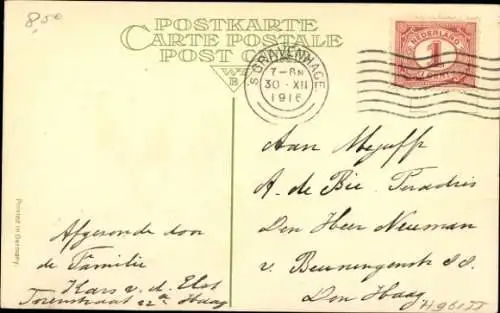 8,50
POSTKARTE
CARTE POSTALE
POST C
W
B
'S GRAVENHAGE
7-8N
30 XII
1916
NEDERLAND
1
CENT
Aan Mejuff
A. de Bie
Den Heer Neuman
v. Beuningenstr 88.
Den Haag
Afgezonde door
de Familie
Kars v. d. Elst
Torenstraat 22a Haag
Printed in Germany